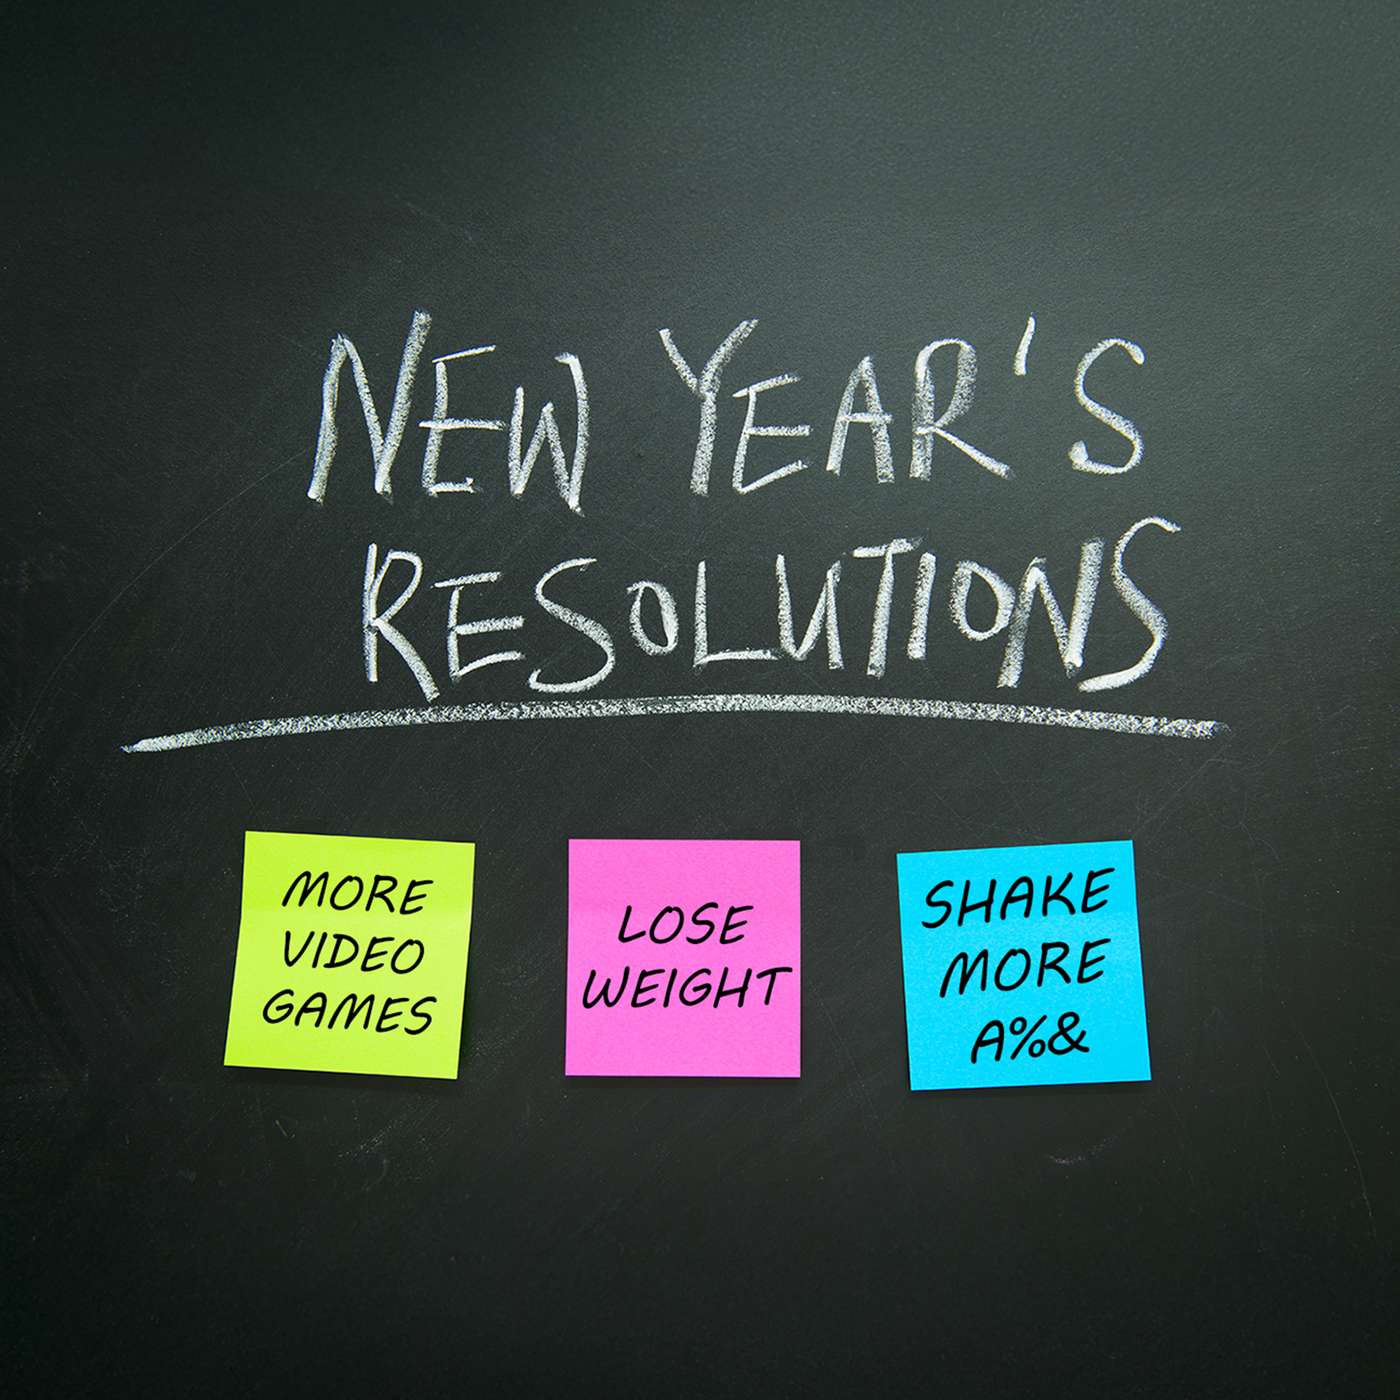 NEW YEAR'S
RESOLUTIONS
MORE
VIDEO
GAMES
LOSE
WEIGHT
SHAKE
MORE
A%&